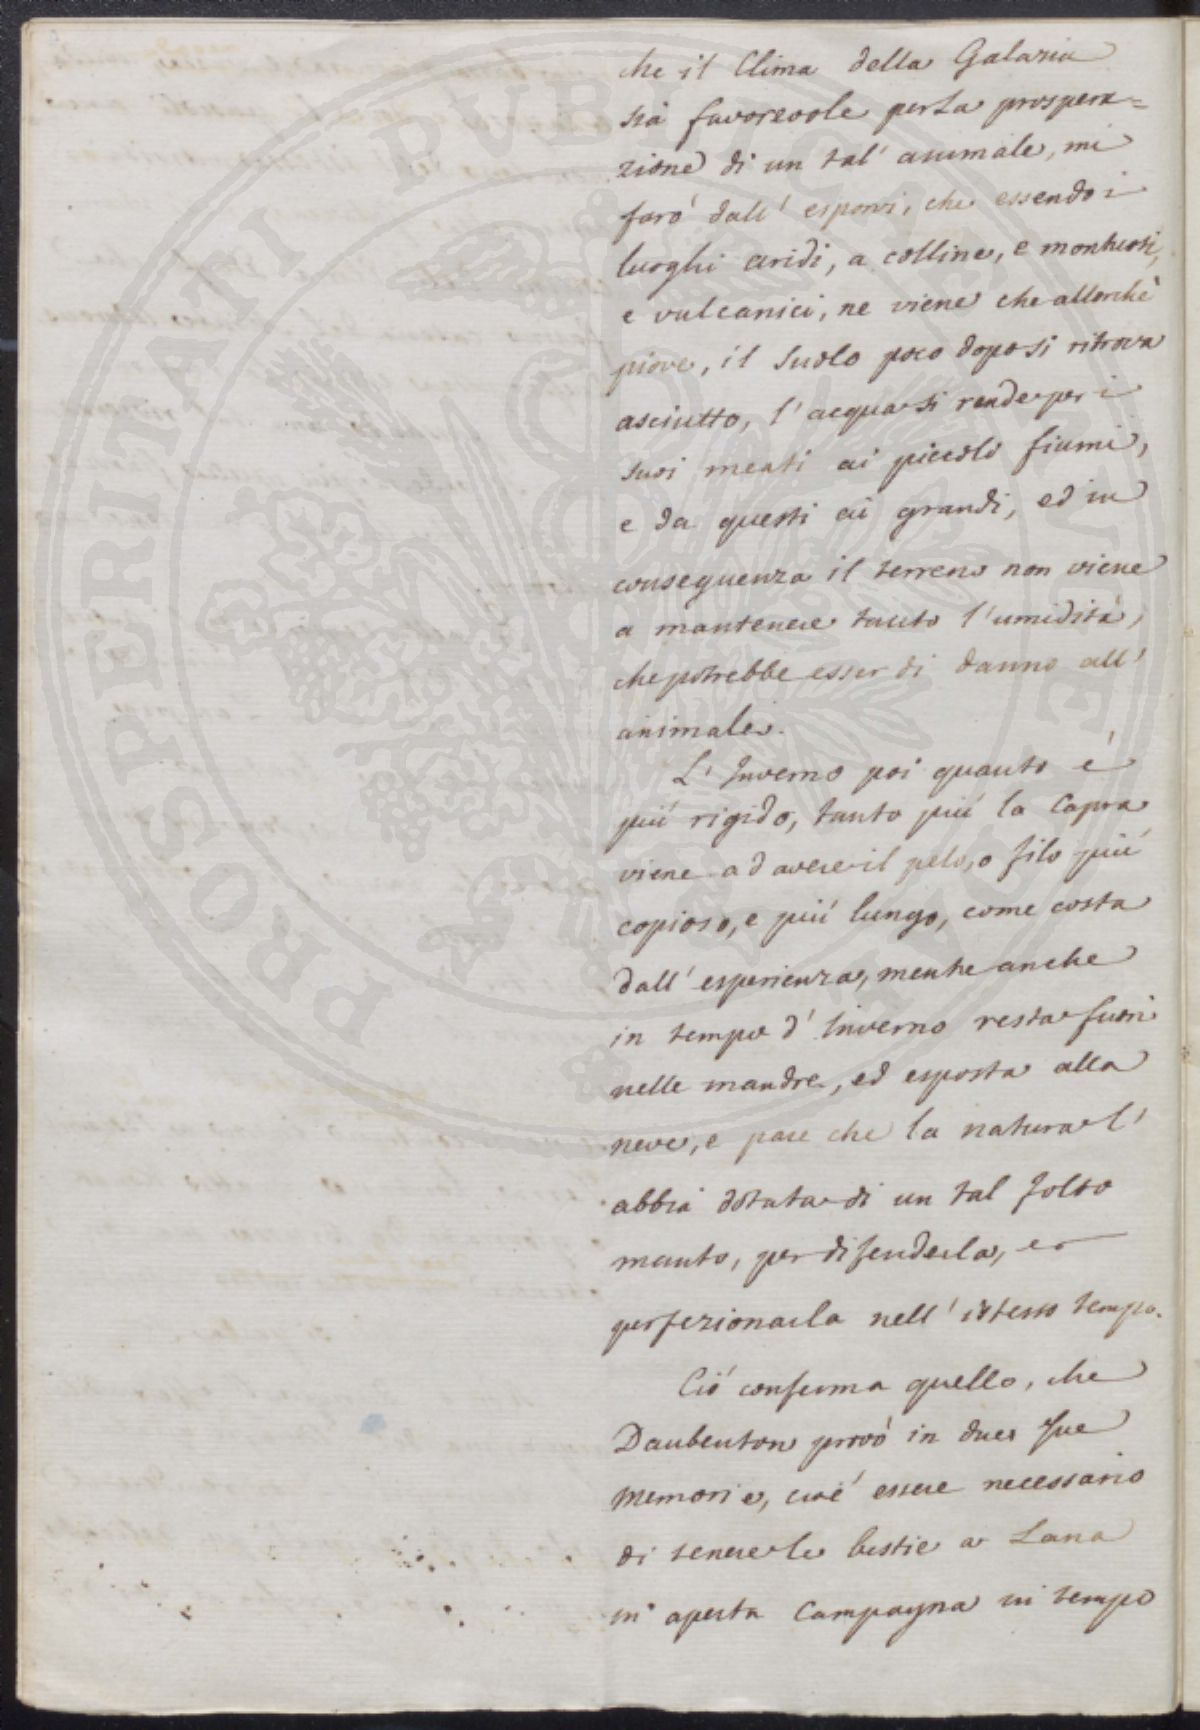 che il Clima della Galazia
sia favorevole per la prospera=
zione di un tal' animale, mi
farò dall' esporvi, che essendo i
luoghi aridi, a colline, e montuosi,
e vulcanici, ne viene che allorchè
piove, il suolo poco dopo si ritrova
asciutto, l'acqua si rende per i
suoi meati ai piccolo fiumi,
e da questi ai grandi, ed in
conseguenza il terreno non viene
a mantenere tanto l'umidità,
che potrebbe esser di danno all'
animale.
L'Inverno poi quanto è
più rigido, tanto più la Capra
viene ad avere il pelo, o filo più
copioso, e più lungo, come costa
dall' esperienza, mentre anche
in tempo d' Inverno resta fuori
nelle mandre, ed esposta alla
neve, e pare che la natura l'
abbia dotata di un tal folto
manto, per difenderla, e
perfezionarla nell' istesso tempo.
Ciò conferma quello, che
Daubenton provò in due sue
Memorie, cioè essere necessario
di tenere le bestie a Lana
in aperta Campagna in tempo
PROSPERITATI PUBLICAE